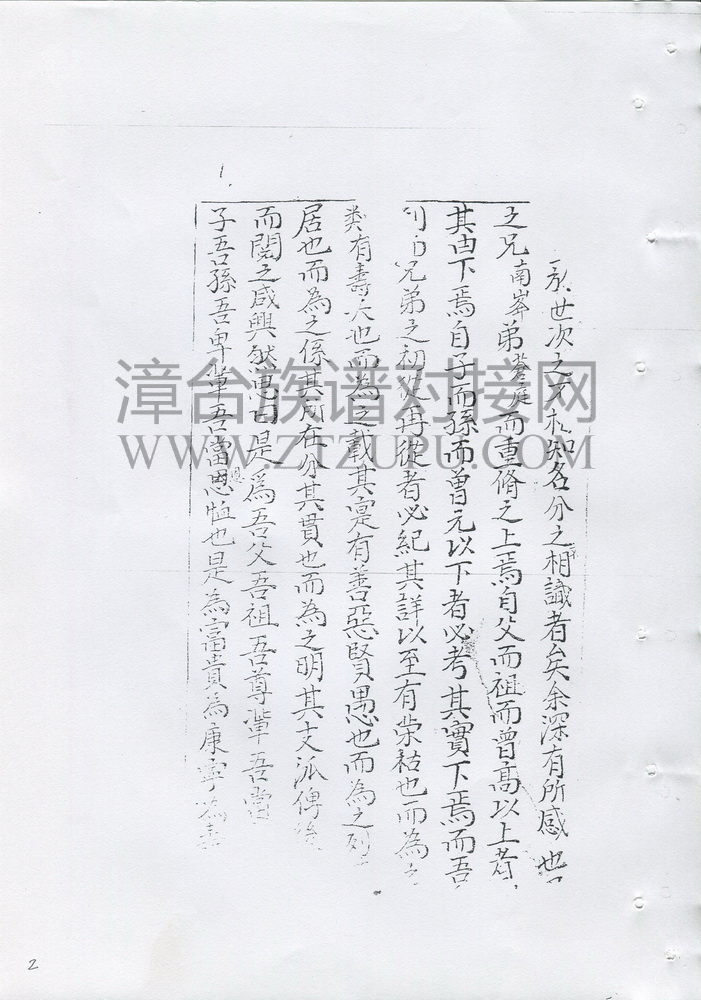 世次之不相知名分之不相識者矣余深有所感也
之兄南峯弟蒼庭而重脩之上焉自父而祖而曾高以上者
其由下焉自子而孫而曾元以下者必考其實下焉而吾
兄弟之初從再從者必紀其詳以至有榮枯也而為之
類有壽夭也而為之載其寔有善惡賢愚也而為之列
居也而為之係其所在分其貫也而為之明其支派俾後
而閱之感興愀然思曰是為吾父吾祖吾尊輩吾當
子吾孫吾卑輩吾當恩恤也是為富貴為康寧為壽
漳台族谱对接网
WWW.ZTZUPU.COM
2